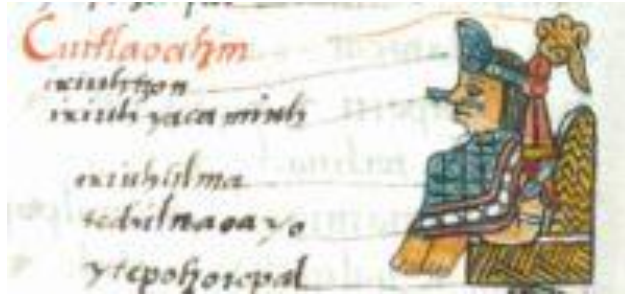 Cuitlaoatzin
ixiuhtzon
ixiuh yaca miuh
ixiuhtilma
ytepotzoicpal